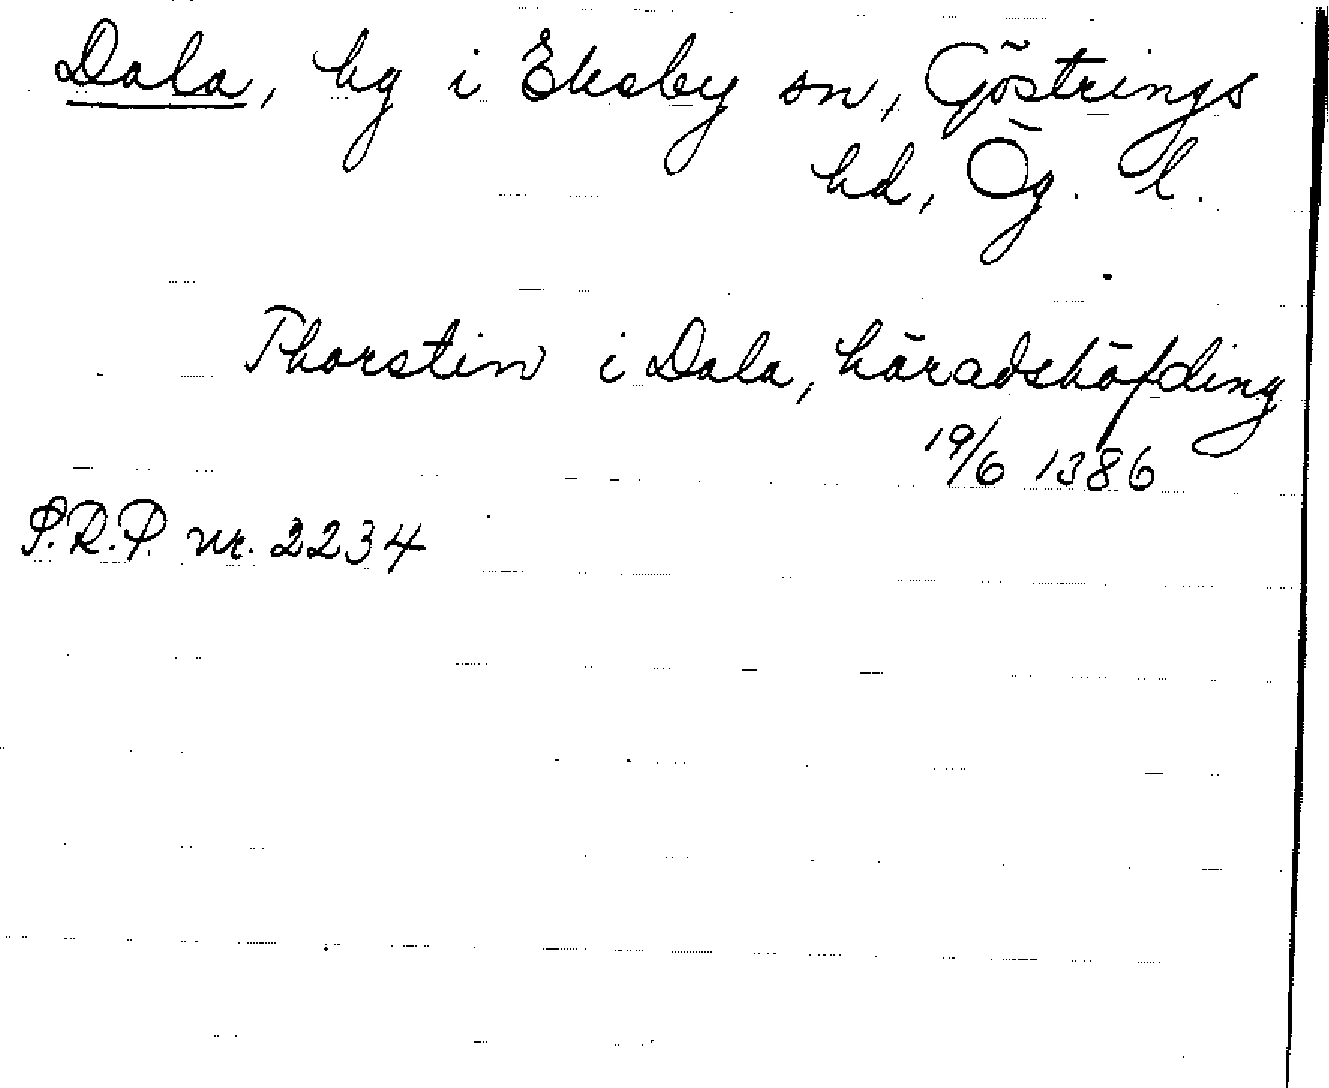 Dala, hg i Ekeby sn, Göstrings
hd, Ög. l.
Thorstin i Dala, häradshöfding
19/6 1386
S.R.P. nr. 2234